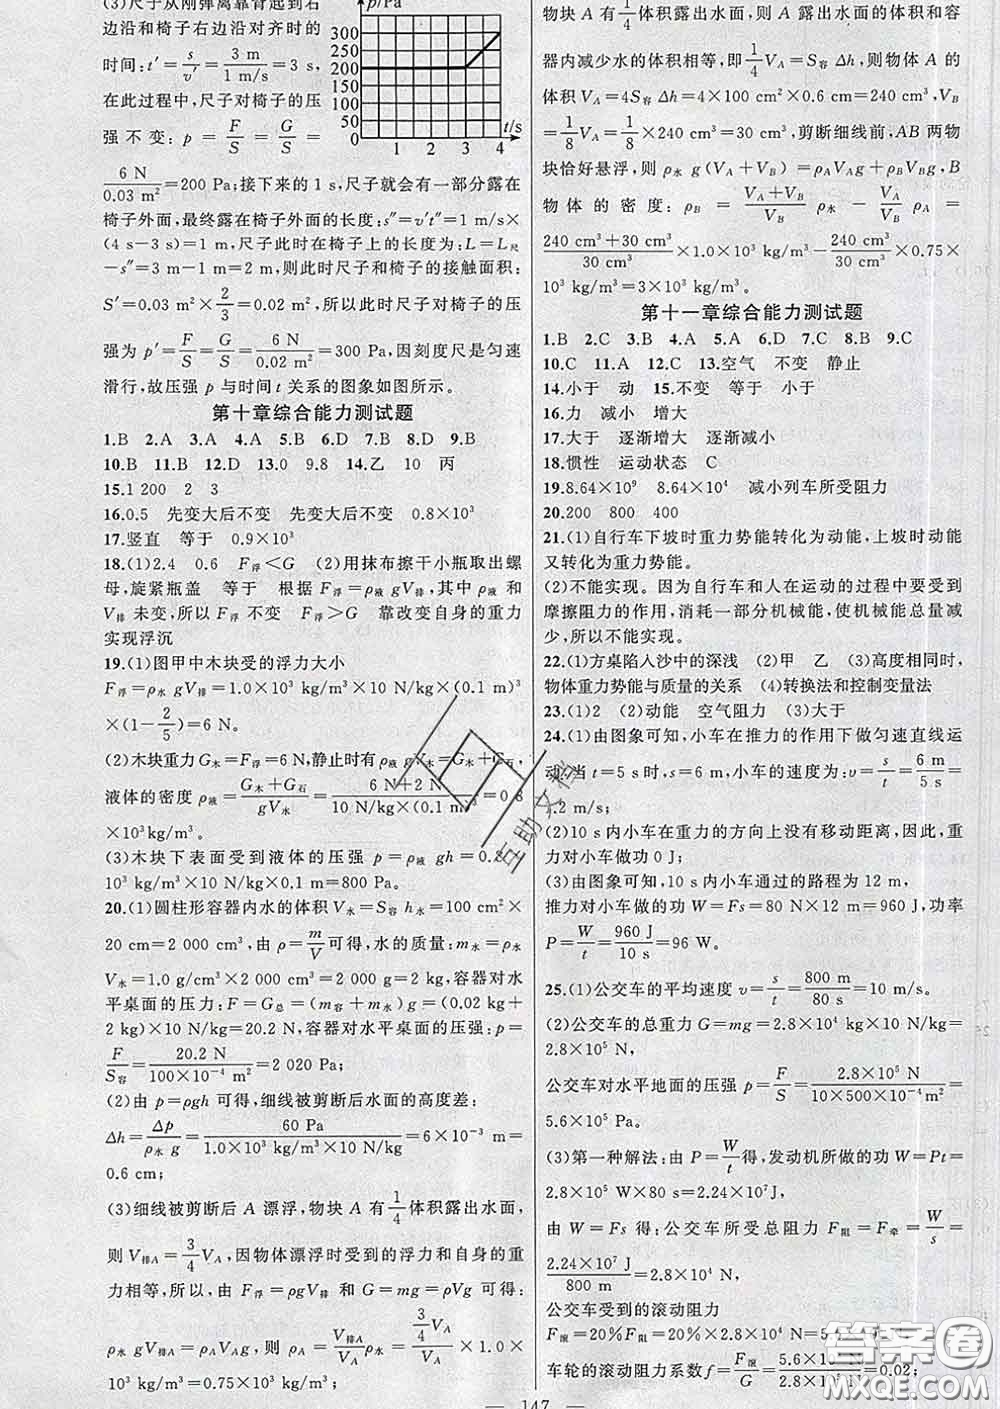 (3)尺子从刚弹离靠背起到右
边沿和椅子右边沿对齐时的
时间:t′=s/v′=3 m/1 m/s=3 s,
在此过程中,尺子对椅子的压
强不变:p=F/S=G/S=
p/Pa
300
250
200
150
100
50
0 1 2 3 4 t/s
6 N/0.03 m²=200 Pa;接下来的1 s,尺子就会有一部分露在
椅子外面,最终露在椅子外面的长度:s″=v′t″=1 m/s×
(4 s-3 s)=1 m,尺子此时在椅子上的长度为:L=L尺
-s″=3 m-1 m=2 m,则此时尺子和椅子的接触面积:
S′=0.03 m²×2/3=0.02 m²,所以此时尺子对椅子的压
强为p′=F/S=G/S=6 N/0.02 m²=300 Pa,因刻度尺是匀速
滑行,故压强p与时间t关系的图象如图所示。
第十章综合能力测试题
1.B 2.A 3.A 4.A 5.B 6.D 7.B 8.D 9.B
10.B 11.B 12.D 13.0 9.8 14.乙 10 丙
15.1 200 2 3
16.0.5 先变大后不变 先变大后不变 0.8×10³
17.竖直 等于 0.9×10³
18.(1)2.4 0.6 F浮<G (2)用抹布擦干小瓶取出螺
母,旋紧瓶盖 等于 根据F浮=ρ液gV排,其中ρ液和
V排未变,所以F浮不变 F浮>G 靠改变自身的重力
实现浮沉
19.(1)图甲中木块受的浮力大小
F浮=ρ水gV排=1.0×10³ kg/m³×10 N/kg×(0.1 m)³
×(1-2/5)=6 N。
(2)木块重力G木=F浮=6 N,静止时有ρ液gV木=G木+G石,
液体的密度ρ液=G木+G石/gV木=6 N+2 N/10 N/kg×(0.1 m)³=0.8
×10³kg/m³。
(3)木块下表面受到液体的压强p=ρ液gh=0.8×
10³ kg/m³×10 N/kg×0.1 m=800 Pa。
20.(1)圆柱形容器内水的体积V水=S容h水=100 cm²×
20 cm=2 000 cm³,由ρ=m/V可得,水的质量:m水=ρ水
V水=1.0 g/cm³×2 000 cm³=2 000 g=2 kg,容器对水
平桌面的压力:F=G总=(m容+m水)g=(0.02 kg+
2 kg)×10 N/kg=20.2 N,容器对水平桌面的压强:p=
F/S容=20.2 N/100×10⁻⁴ m²=2 020 Pa;
(2)由p=ρgh可得,细线被剪断后水面的高度差:
Δh=Δp/ρ水g=60 Pa/1.0×10³ kg/m³×10 N/kg=6×10⁻³ m=
0.6 cm;
(3)细线被剪断后A漂浮,物块A有1/4体积露出水面,
则V排A=3/4V A,因物体漂浮时受到的浮力和自身的重
力相等,所以,由F浮=ρgV排和G=mg=ρVg可得:
ρ水gV排A=ρAVAg,则ρA=V排A/VAρ水=3/4VA/VA×1.0×
10³ kg/m³=0.75×10³ kg/m³;
物块A有1/4体积露出水面,则A露出水面的体积和容
器内减少水的体积相等,即1/4VA=S容Δh,则物体A的
体积VA=4S容Δh=4×100 cm²×0.6 cm=240 cm³,VB
=1/8VA=1/8×240 cm³=30 cm³,剪断细线前,AB两物
块恰好悬浮,则ρ水g(VA+VB)=ρAVAg+ρBVBg,B
物体的密度:ρB=VA+VB/VBρ水-VA/VBρA=
240 cm³+30 cm³/30 cm³×1.0×10³ kg/m³-240 cm³/30 cm³×0.75×
10³ kg/m³=3×10³kg/m³。
第十一章综合能力测试题
1.B 2.C 3.B 4.A 5.A 6.D 7.C 8.B 9.C
10.C 11.A 12.C 13.空气 不变 静止
14.小于 动 15.不变 等于 小于
16.力 减小 增大
17.大于 逐渐增大 逐渐减小
18.惯性 运动状态 C
19.8.64×10⁹ 8.64×10⁴ 减小列车所受阻力
20.200 800 400
21.(1)自行车下坡时重力势能转化为动能,上坡时动能
又转化为重力势能。
(2)不能实现。因为自行车和人在运动的过程中要受到
摩擦阻力的作用,消耗一部分机械能,使机械能总量减
少,所以不能实现。
22.(1)方桌陷入沙中的深浅 (2)甲 乙 (3)高度相同时,
物体重力势能与质量的关系 (4)转换法和控制变量法
23.(1)2 (2)动能 空气阻力 (3)大于
24.(1)由图象可知,小车在推力的作用下做匀速直线运
动,当t=5 s时,s=6 m,小车的速度为:v=s/t=6 m/5 s=
1.2 m/s;
(2)10 s内小车在重力的方向上没有移动距离,因此,重
力对小车做功0 J;
(3)由图象可知,10 s内小车通过的路程为12 m,
推力对小车做的功W=Fs=80 N×12 m=960 J,功率
P=W/t=960 J/10 s=96 W。
25.(1)公交车的平均速度v=s/t=800 m/80 s=10 m/s。
(2)公交车的总重力G=mg=2.8×10⁴kg×10 N/kg=
2.8×10⁵ N,
公交车对水平地面的压强p=F/S=2.8×10⁵ N/10×500×10⁻⁴m²=
5.6×10⁵ Pa。
(3)第一种解法:由P=W/t得,发动机所做的功W=Pt=
2.8×10⁵ W×80 s=2.24×10⁷J,
由W=Fs得:公交车所受总阻力F阻=F牵=W/s=
2.24×10⁷ J/800 m=2.8×10⁴N,
公交车受到的滚动阻力
F滚=20%F阻=20%×2.8×10⁴N=5.6×
车轮的滚动阻力系数f=F滚/G=5.6×10/2.8×10=0.02;
— 147 —
互助文档
答案圈
MXQE.COM